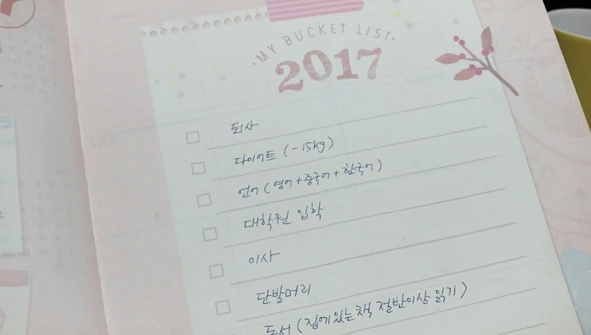 MY BUCKET LIST
2017
퇴사
다이어트 (-15kg)
언어 (영어+중국어+한국어)
대학원 입학
이사
단발머리
독서 (집에있는책 절반이상 읽기)